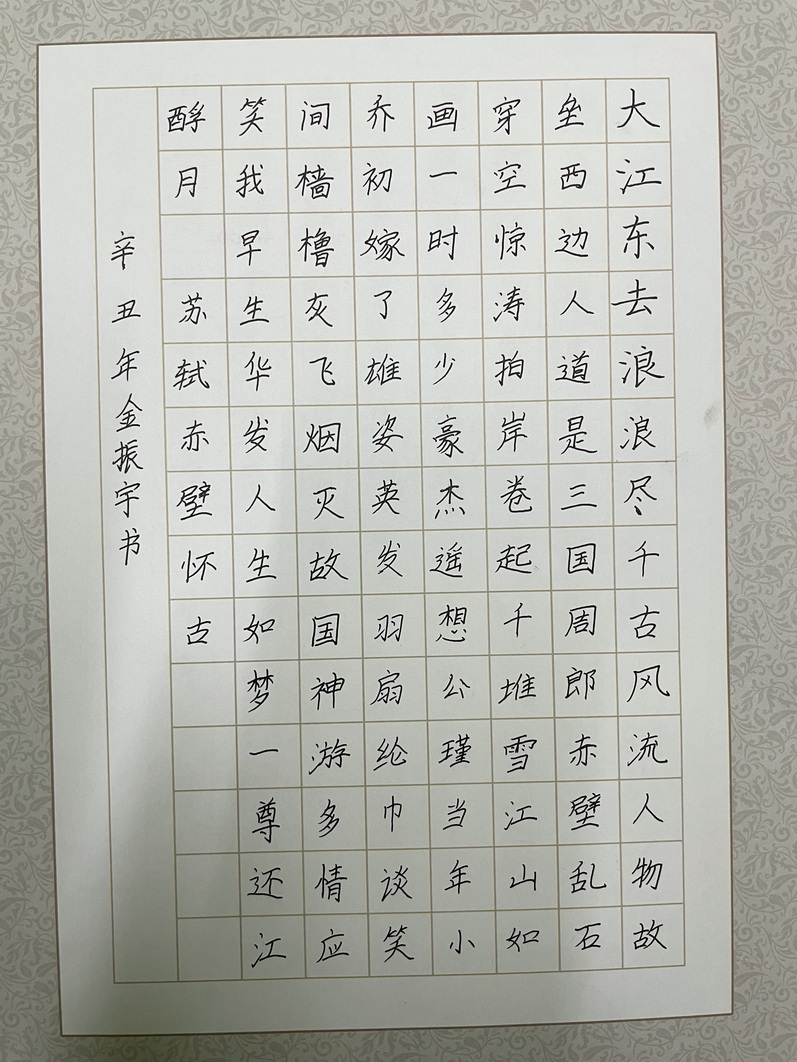 大江东去浪浪尽千古风流人物故
垒西边人道是三国周郎赤壁乱石
穿空惊涛拍岸卷起千堆雪江山如
画一时多少豪杰遥想公瑾当年小
乔初嫁了雄姿英发羽扇纶巾谈笑
间樯橹灰飞烟灭故国神游多情应
笑我早生华发人生如梦一尊还江
酹月 苏轼赤壁怀古
辛丑年金振宇书